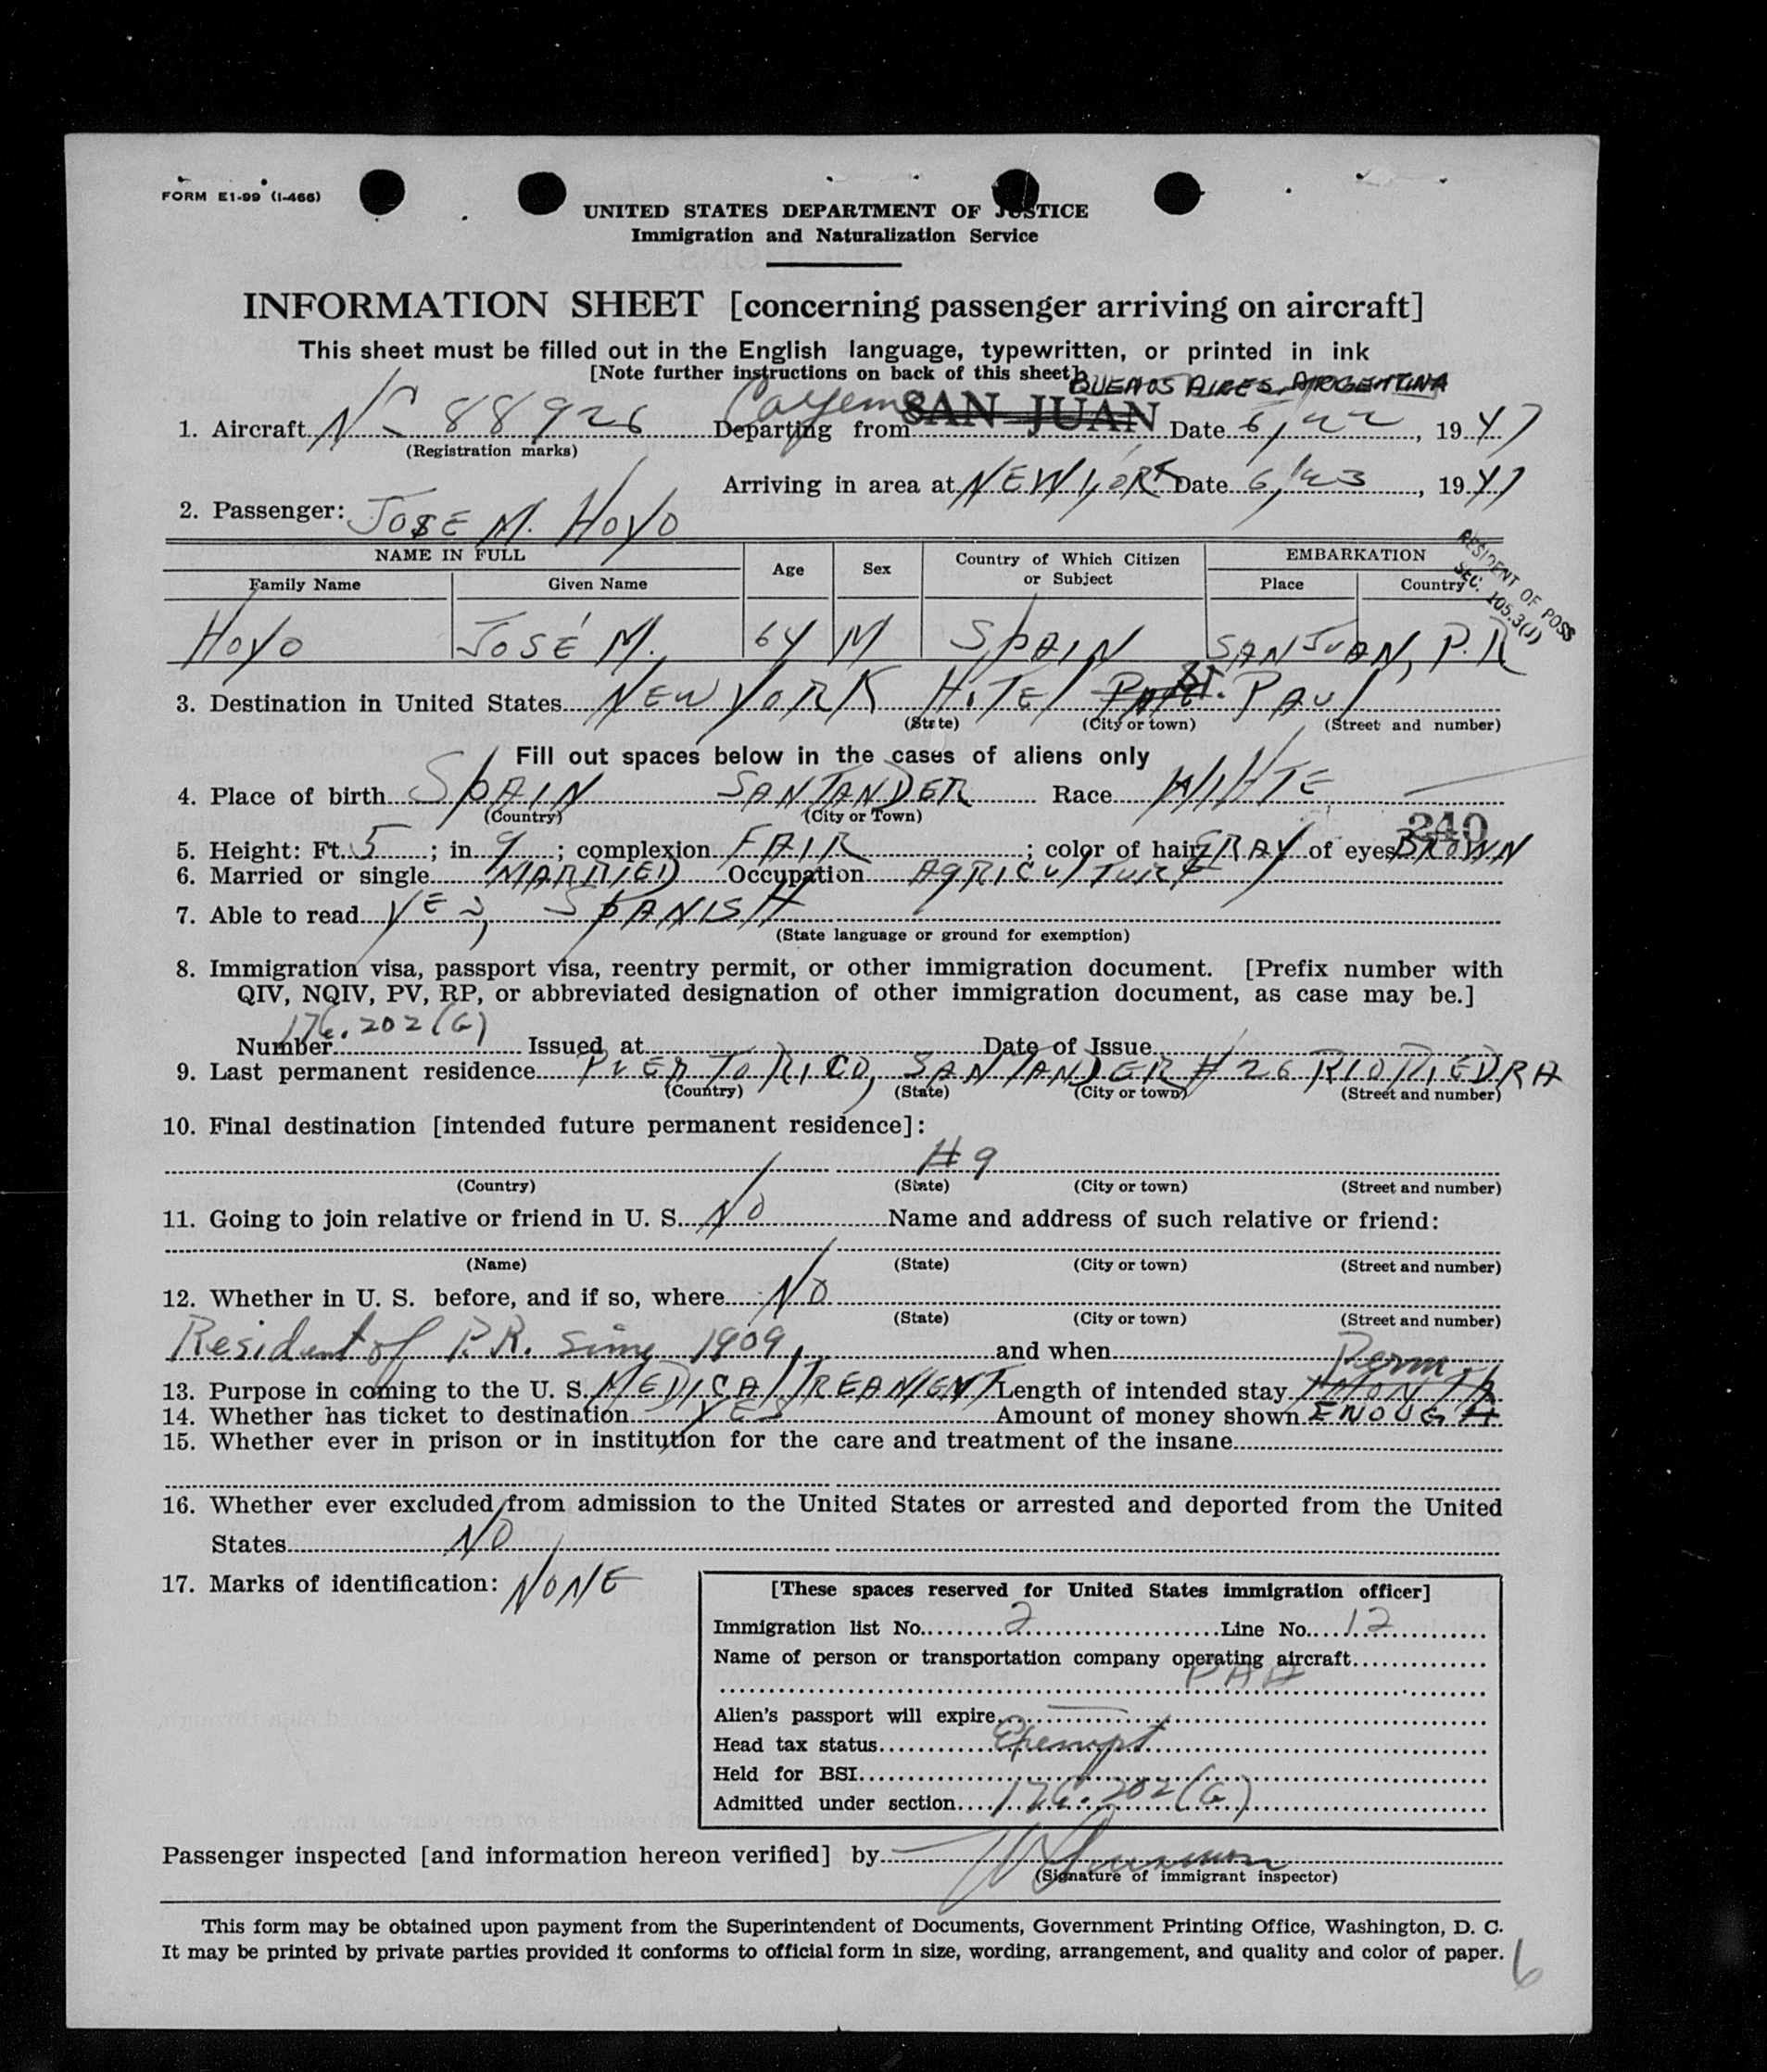 FORM E1-99 (I-466)
UNITED STATES DEPARTMENT OF JUSTICE
Immigration and Naturalization Service
INFORMATION SHEET [concerning passenger arriving on aircraft]
This sheet must be filled out in the English language, typewritten, or printed in ink
[Note further instructions on back of this sheet]
BUENOS AIRES, ARGENTINA
1. Aircraft NC 88926 Departing from SAN JUAN Date 6/22, 1947
(Registration marks)
Arriving in area at NEW YORK Date 6/23, 1947
2. Passenger: JOSE M. HOYO
NAME IN FULL Age Sex Country of Which Citizen or Subject EMBARKATION
Family Name Given Name Place Country
RESIDENT OF POSS
SEC. 105.3(J)
HOYO JOSÉ M. 64 M SPAIN SAN JUAN, P.R
3. Destination in United States NEW YORK HOTEL ST. PAUL
(State) (City or town) (Street and number)
Fill out spaces below in the cases of aliens only
4. Place of birth SPAIN SANTANDER Race WHITE
(Country) (City or Town)
240
5. Height: Ft. 5; in 9; complexion FAIR; color of hair GRAY of eyes BROWN
6. Married or single MARRIED Occupation AGRICULTURE
7. Able to read YES, SPANISH
(State language or ground for exemption)
8. Immigration visa, passport visa, reentry permit, or other immigration document. [Prefix number with
QIV, NQIV, PV, RP, or abbreviated designation of other immigration document, as case may be.]
Number 176.202(G) Issued at Date of Issue
9. Last permanent residence PUERTO RICO, SANTANDER #26 RIO PIEDRA
(Country) (State) (City or town) (Street and number)
10. Final destination [intended future permanent residence]:
#9
(Country) (State) (City or town) (Street and number)
11. Going to join relative or friend in U. S. NO Name and address of such relative or friend:
(Name) (State) (City or town) (Street and number)
12. Whether in U. S. before, and if so, where NO
(State) (City or town) (Street and number)
Resident of P.R. since 1909, and when Perm.
13. Purpose in coming to the U. S. MEDICAL TREANIENT Length of intended stay
14. Whether has ticket to destination YES Amount of money shown ENOUGH
15. Whether ever in prison or in institution for the care and treatment of the insane
16. Whether ever excluded from admission to the United States or arrested and deported from the United
States NO
17. Marks of identification: NONE
[These spaces reserved for United States immigration officer]
Immigration list No. 2 Line No. 12
Name of person or transportation company operating aircraft
PAA
Alien's passport will expire
Head tax status Exempt
Held for BSI
Admitted under section 176.202(G)
Passenger inspected [and information hereon verified] by
(Signature of immigrant inspector)
This form may be obtained upon payment from the Superintendent of Documents, Government Printing Office, Washington, D. C.
It may be printed by private parties provided it conforms to official form in size, wording, arrangement, and quality and color of paper.
6